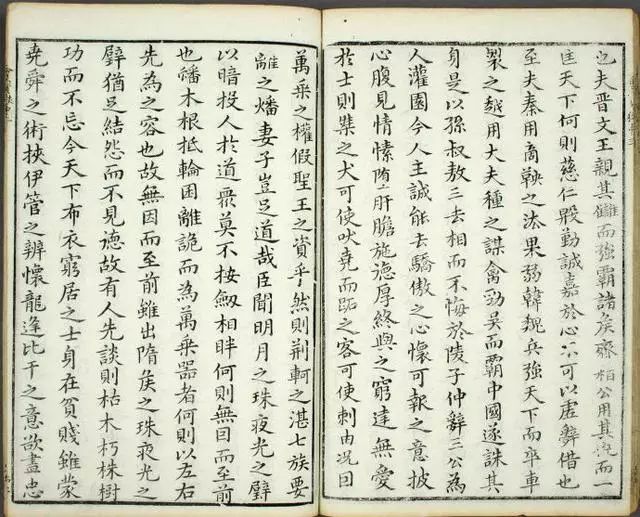 也夫晋文王親其讎而強霸諸侯齋桓公用其仇而一
匡天下何則慈仁殷勤誠嘉於心不可以虛辭借也
至夫秦用商鞅之法果弱韓魏兵強天下而卒車
裂之越用大夫種之謀禽勁吳而霸中國遂誅其
身是以孫叔敖三去相而不悔於陵子仲辭三公為
人灌園今人主誠能去驕傲之心懷可報之意披
心腹見情愫墮肝膽施德厚終與之窮達無愛
於士則桀之犬可使吠堯而跖之客可使刺由況因
萬乘之權假聖王之資乎然則荊軻之湛七族要
離之燔妻子豈足道哉臣聞明月之珠夜光之璧
以暗投人於道衆莫不按劔相眄何則無因而至前
也蟠木根柢輪囷離詭而為萬乘器者何則以左右
先為之容也故無因而至前雖出隋侯之珠夜光之
璧猶足結怨而不見德故有人先談則枯木朽株樹
功而不忘今天下布衣窮居之士身在貧賤雖蒙
堯舜之術挾伊管之辨懷龍逢比干之意欲盡忠